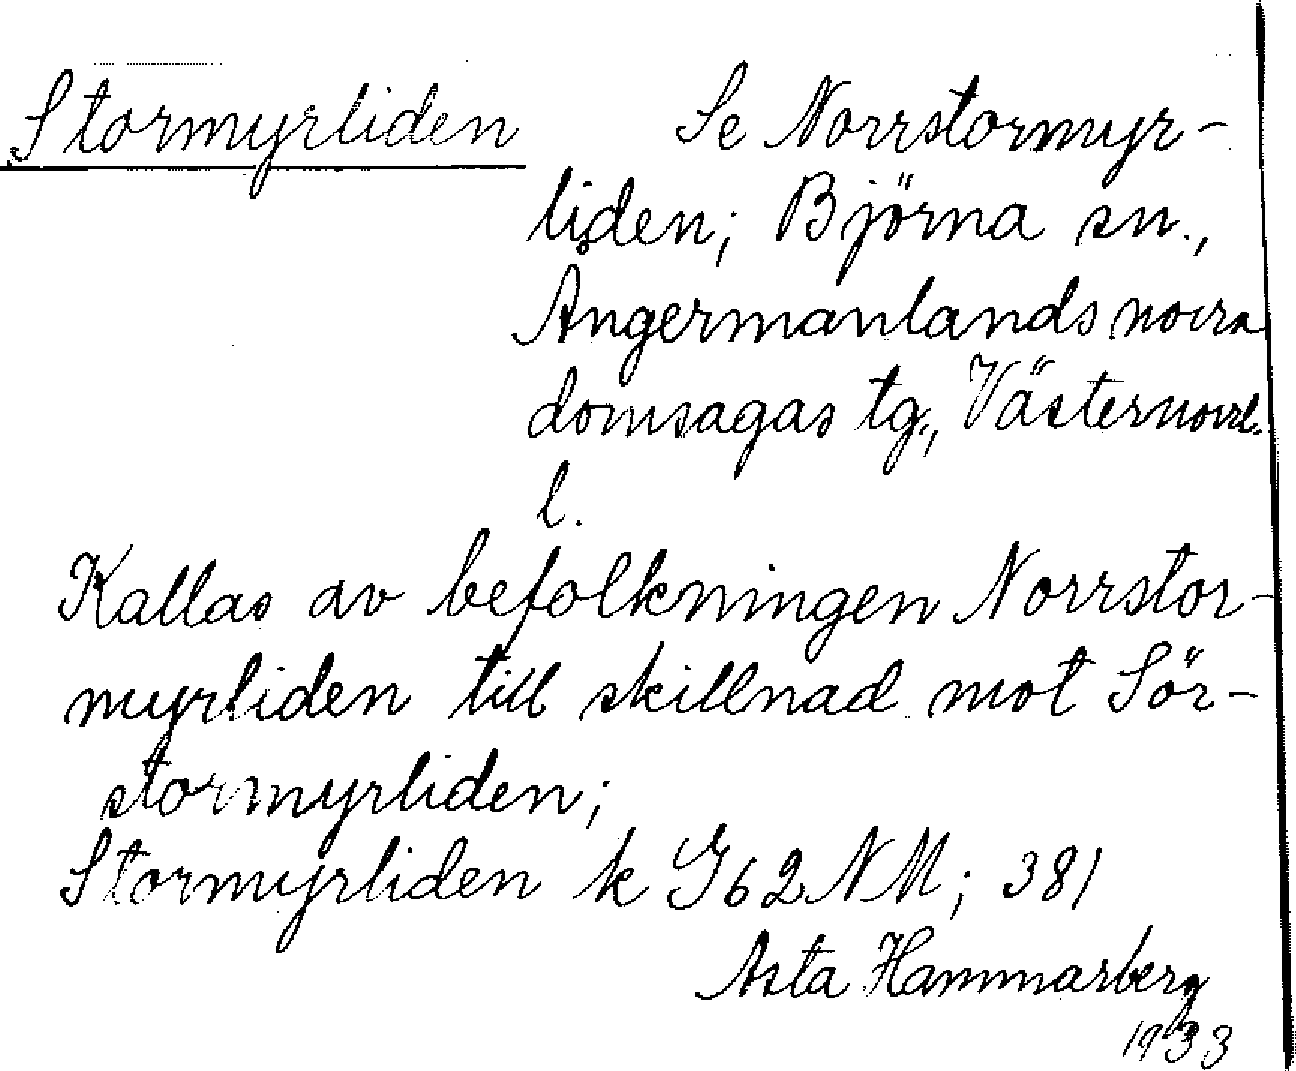 Stormyrliden Se Norrstormyr-
liden; Björna sn.,
Angermanlands norra
domsagas tg., Västernorrl.
l.
Kallas av befolkningen Norrstor-
myrliden till skillnad mot Sör-
stormyrliden;
Stormyrliden k G62NM; 381
Asta Hammarberg
1933